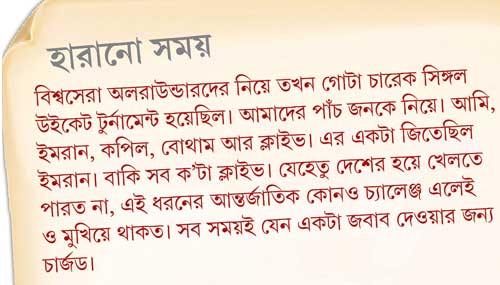 হারানো সময়
বিশ্বসেরা অলরাউন্ডারদের নিয়ে তখন গোটা চারেক সিঙ্গল
উইকেট টুর্নামেন্ট হয়েছিল। আমাদের পাঁচ জনকে নিয়ে। আমি,
ইমরান, কপিল, বোথাম আর ক্লাইভ। এর একটা জিতেছিল
ইমরান। বাকি সব ক’টা ক্লাইভ। যেহেতু দেশের হয়ে খেলতে
পারত না, এই ধরনের আন্তর্জাতিক কোনও চ্যালেঞ্জ এলেই
ও মুখিয়ে থাকত। সব সময়ই যেন একটা জবাব দেওয়ার জন্য
চার্জড।